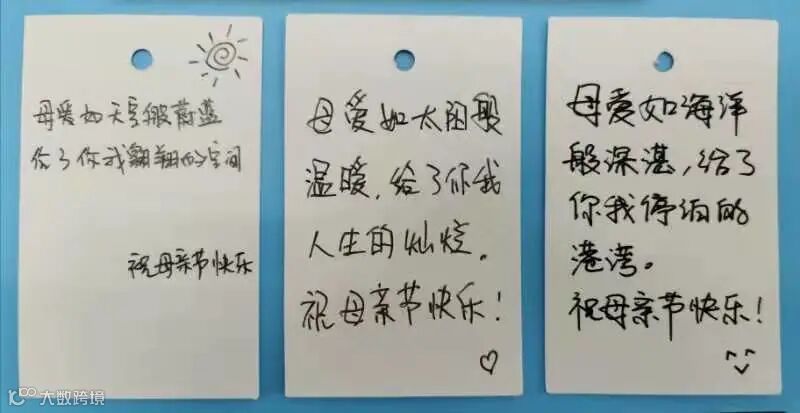 母爱如天空般蔚蓝
给了你我翱翔的空间
祝母亲节快乐
母爱如太阳般
温暖,给了你我
人生的灿烂。
祝母亲节快乐!
母爱如海洋
般深湛,给了
你我停泊的
港湾。
祝母亲节快乐!
大数跨境